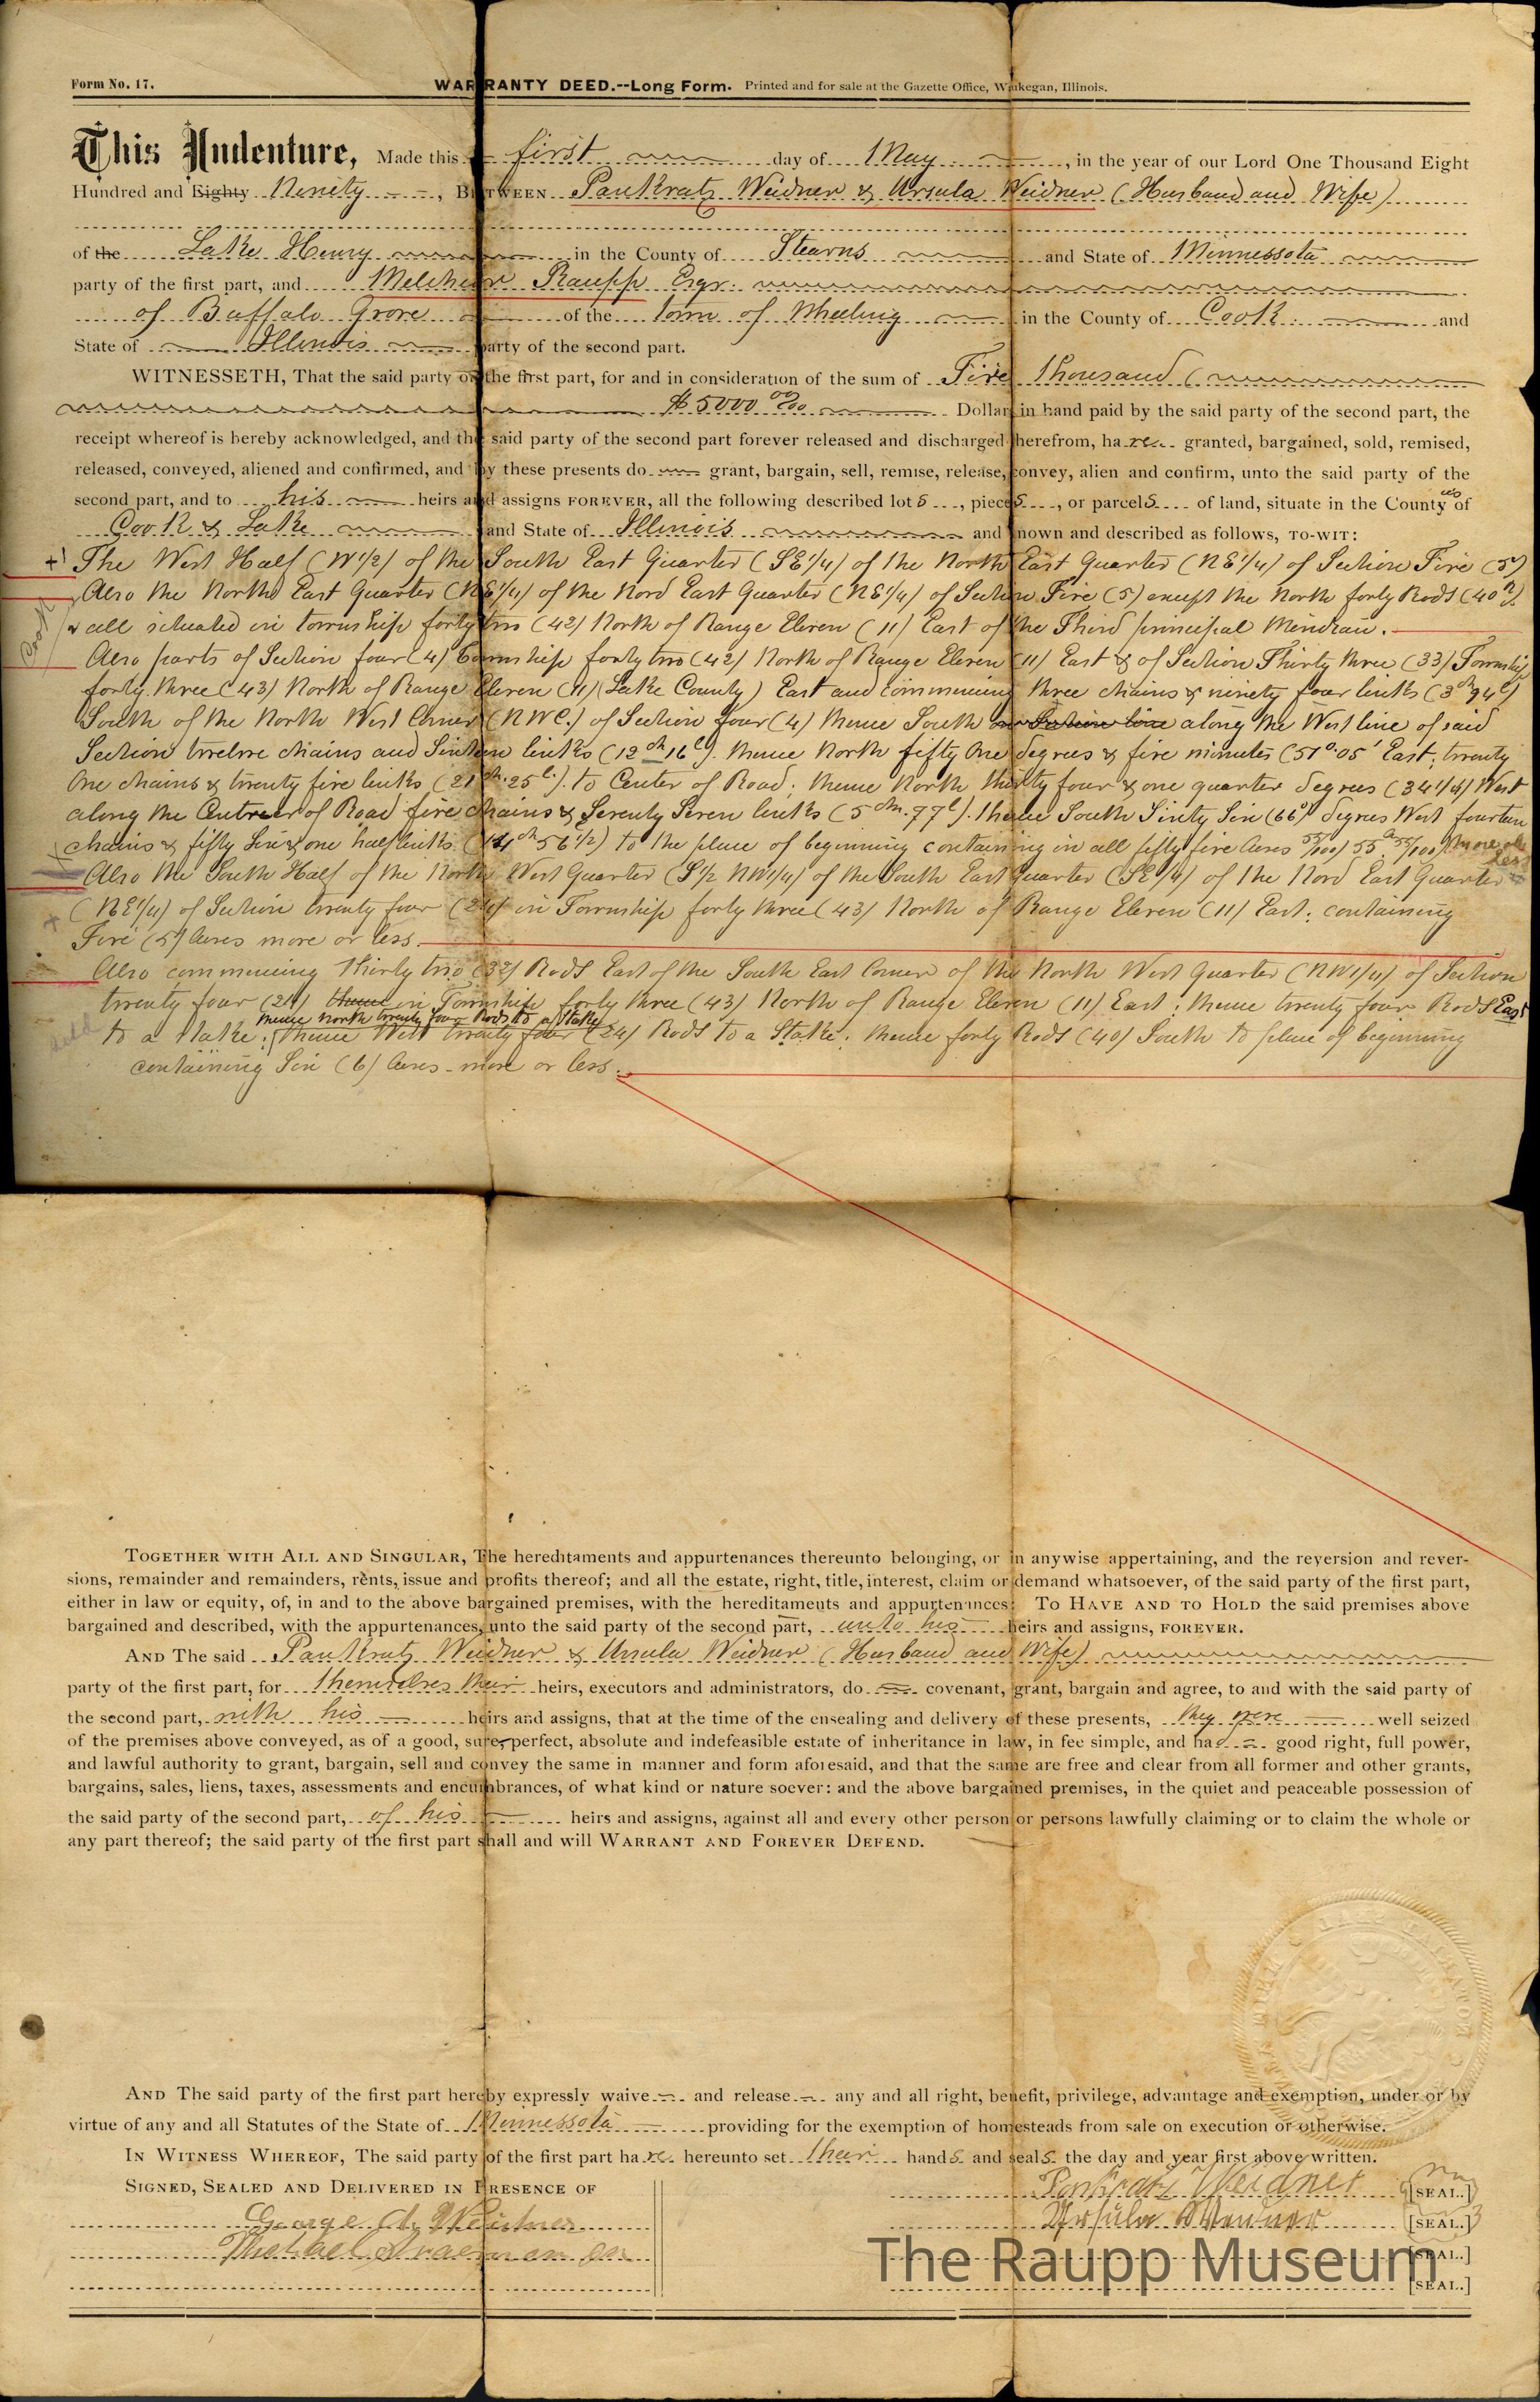 Form No. 17. WARRANTY DEED.--Long Form. Printed and for sale at the Gazette Office, Waukegan, Illinois.
This Indenture, Made this first day of May, in the year of our Lord One Thousand Eight
Hundred and Eighty Ninety, BETWEEN Pankratz Weidner & Ursula Weidner (Husband and Wife)
of the Lake Henry in the County of Stearns and State of Minnessota
party of the first part, and Melchior Raupp Esqr.
of Buffalo Grove of the town of Wheeling in the County of Cook and
State of Illinois party of the second part.
WITNESSETH, That the said party of the first part, for and in consideration of the sum of Five Thousand (
$5000 00/00 Dollars in hand paid by the said party of the second part, the
receipt whereof is hereby acknowledged, and the said party of the second part forever released and discharged therefrom, have granted, bargained, sold, remised,
released, conveyed, aliened and confirmed, and by these presents do grant, bargain, sell, remise, release, convey, alien and confirm, unto the said party of the
second part, and to his heirs and assigns FOREVER, all the following described lots, pieces, or parcels of land, situate in the County ies of
Cook & Lake and State of Illinois and known and described as follows, TO-WIT:
The West Half (W 1/2) of the South East Quarter (SE 1/4) of the North East Quarter (NE 1/4) of Section Five (5)
Also the North East Quarter (NE 1/4) of the Nord East Quarter (NE 1/4) of Section Five (5) except the North forty Rods (40 R).
& all situated in township forty two (42) North of Range Eleven (11) East of the Third principal Meridian.
Cook
Also parts of Section four (4) Township forty two (42) North of Range Eleven (11) East & of Section Thirty three (33) Township
forty three (43) North of Range Eleven (11) (Lake County) East and commencing three chains & ninety four links (3 ch 94 l)
South of the North West Corner (NWC.) of Section four (4) thence South on Section line along the West line of said
Section twelve chains and Sixteen links (12 ch 16 l). thence North fifty One degrees & five minutes (51°.05' East; twenty
One chains & twenty five links (21 ch. 25 l.). to Center of Road; thence North thirty four & one quarter degrees (34 1/4) West
along the Centre of Road five chains & Seventy Seven links (5 ch. 77 l). thence South Sixty Six (66°) degrees West fourteen
chains & fifty Six & one half links (14 ch 56 1/2) to the place of beginning containing in all fifty five Acres 55/100) 55 a 55/100) more or less
Also the South Half of the North West Quarter (S 1/2 NW 1/4) of the South East Quarter (SE 1/4) of the Nord East Quarter
(NE 1/4) of Section twenty four (24) in Township forty three (43) North of Range Eleven (11) East; containing
Five (5) Acres more or less.
Also commencing thirty two (32) Rods East of the South East Corner of the North West Quarter (NW 1/4) of Section
twenty four (24) thence in Township forty three (43) North of Range Eleven (11) East; thence twenty four Rods East
thence North twenty four Rods to a Stake
to a stake; thence West twenty four (24) Rods to a Stake; thence forty Rods (40) South to place of beginning
containing Six (6) Acres more or less.
TOGETHER WITH ALL AND SINGULAR, The hereditaments and appurtenances thereunto belonging, or in anywise appertaining, and the reversion and rever-
sions, remainder and remainders, rents, issue and profits thereof; and all the estate, right, title, interest, claim or demand whatsoever, of the said party of the first part,
either in law or equity, of, in and to the above bargained premises, with the hereditaments and appurtenances: TO HAVE AND TO HOLD the said premises above
bargained and described, with the appurtenances, unto the said party of the second part, unto his heirs and assigns, FOREVER.
AND The said Pankratz Weidner & Ursula Weidner (Husband and Wife)
party of the first part, for themselves their heirs, executors and administrators, do covenant, grant, bargain and agree, to and with the said party of
the second part, with his heirs and assigns, that at the time of the ensealing and delivery of these presents, they were well seized
of the premises above conveyed, as of a good, sure, perfect, absolute and indefeasible estate of inheritance in law, in fee simple, and had good right, full power,
and lawful authority to grant, bargain, sell and convey the same in manner and form aforesaid, and that the same are free and clear from all former and other grants,
bargains, sales, liens, taxes, assessments and encumbrances, of what kind or nature soever: and the above bargained premises, in the quiet and peaceable possession of
the said party of the second part, of his heirs and assigns, against all and every other person or persons lawfully claiming or to claim the whole or
any part thereof; the said party of the first part shall and will WARRANT AND FOREVER DEFEND.
AND The said party of the first part hereby expressly waive and release any and all right, benefit, privilege, advantage and exemption, under or by
virtue of any and all Statutes of the State of Minnessota providing for the exemption of homesteads from sale on execution or otherwise.
IN WITNESS WHEREOF, The said party of the first part have hereunto set their hands and seals the day and year first above written.
SIGNED, SEALED AND DELIVERED IN PRESENCE OF Pankratz Weidner [SEAL.]
George A. Weidner Ursula Weidner [SEAL.]
Michael [SEAL.]
[SEAL.]
The Raupp Museum